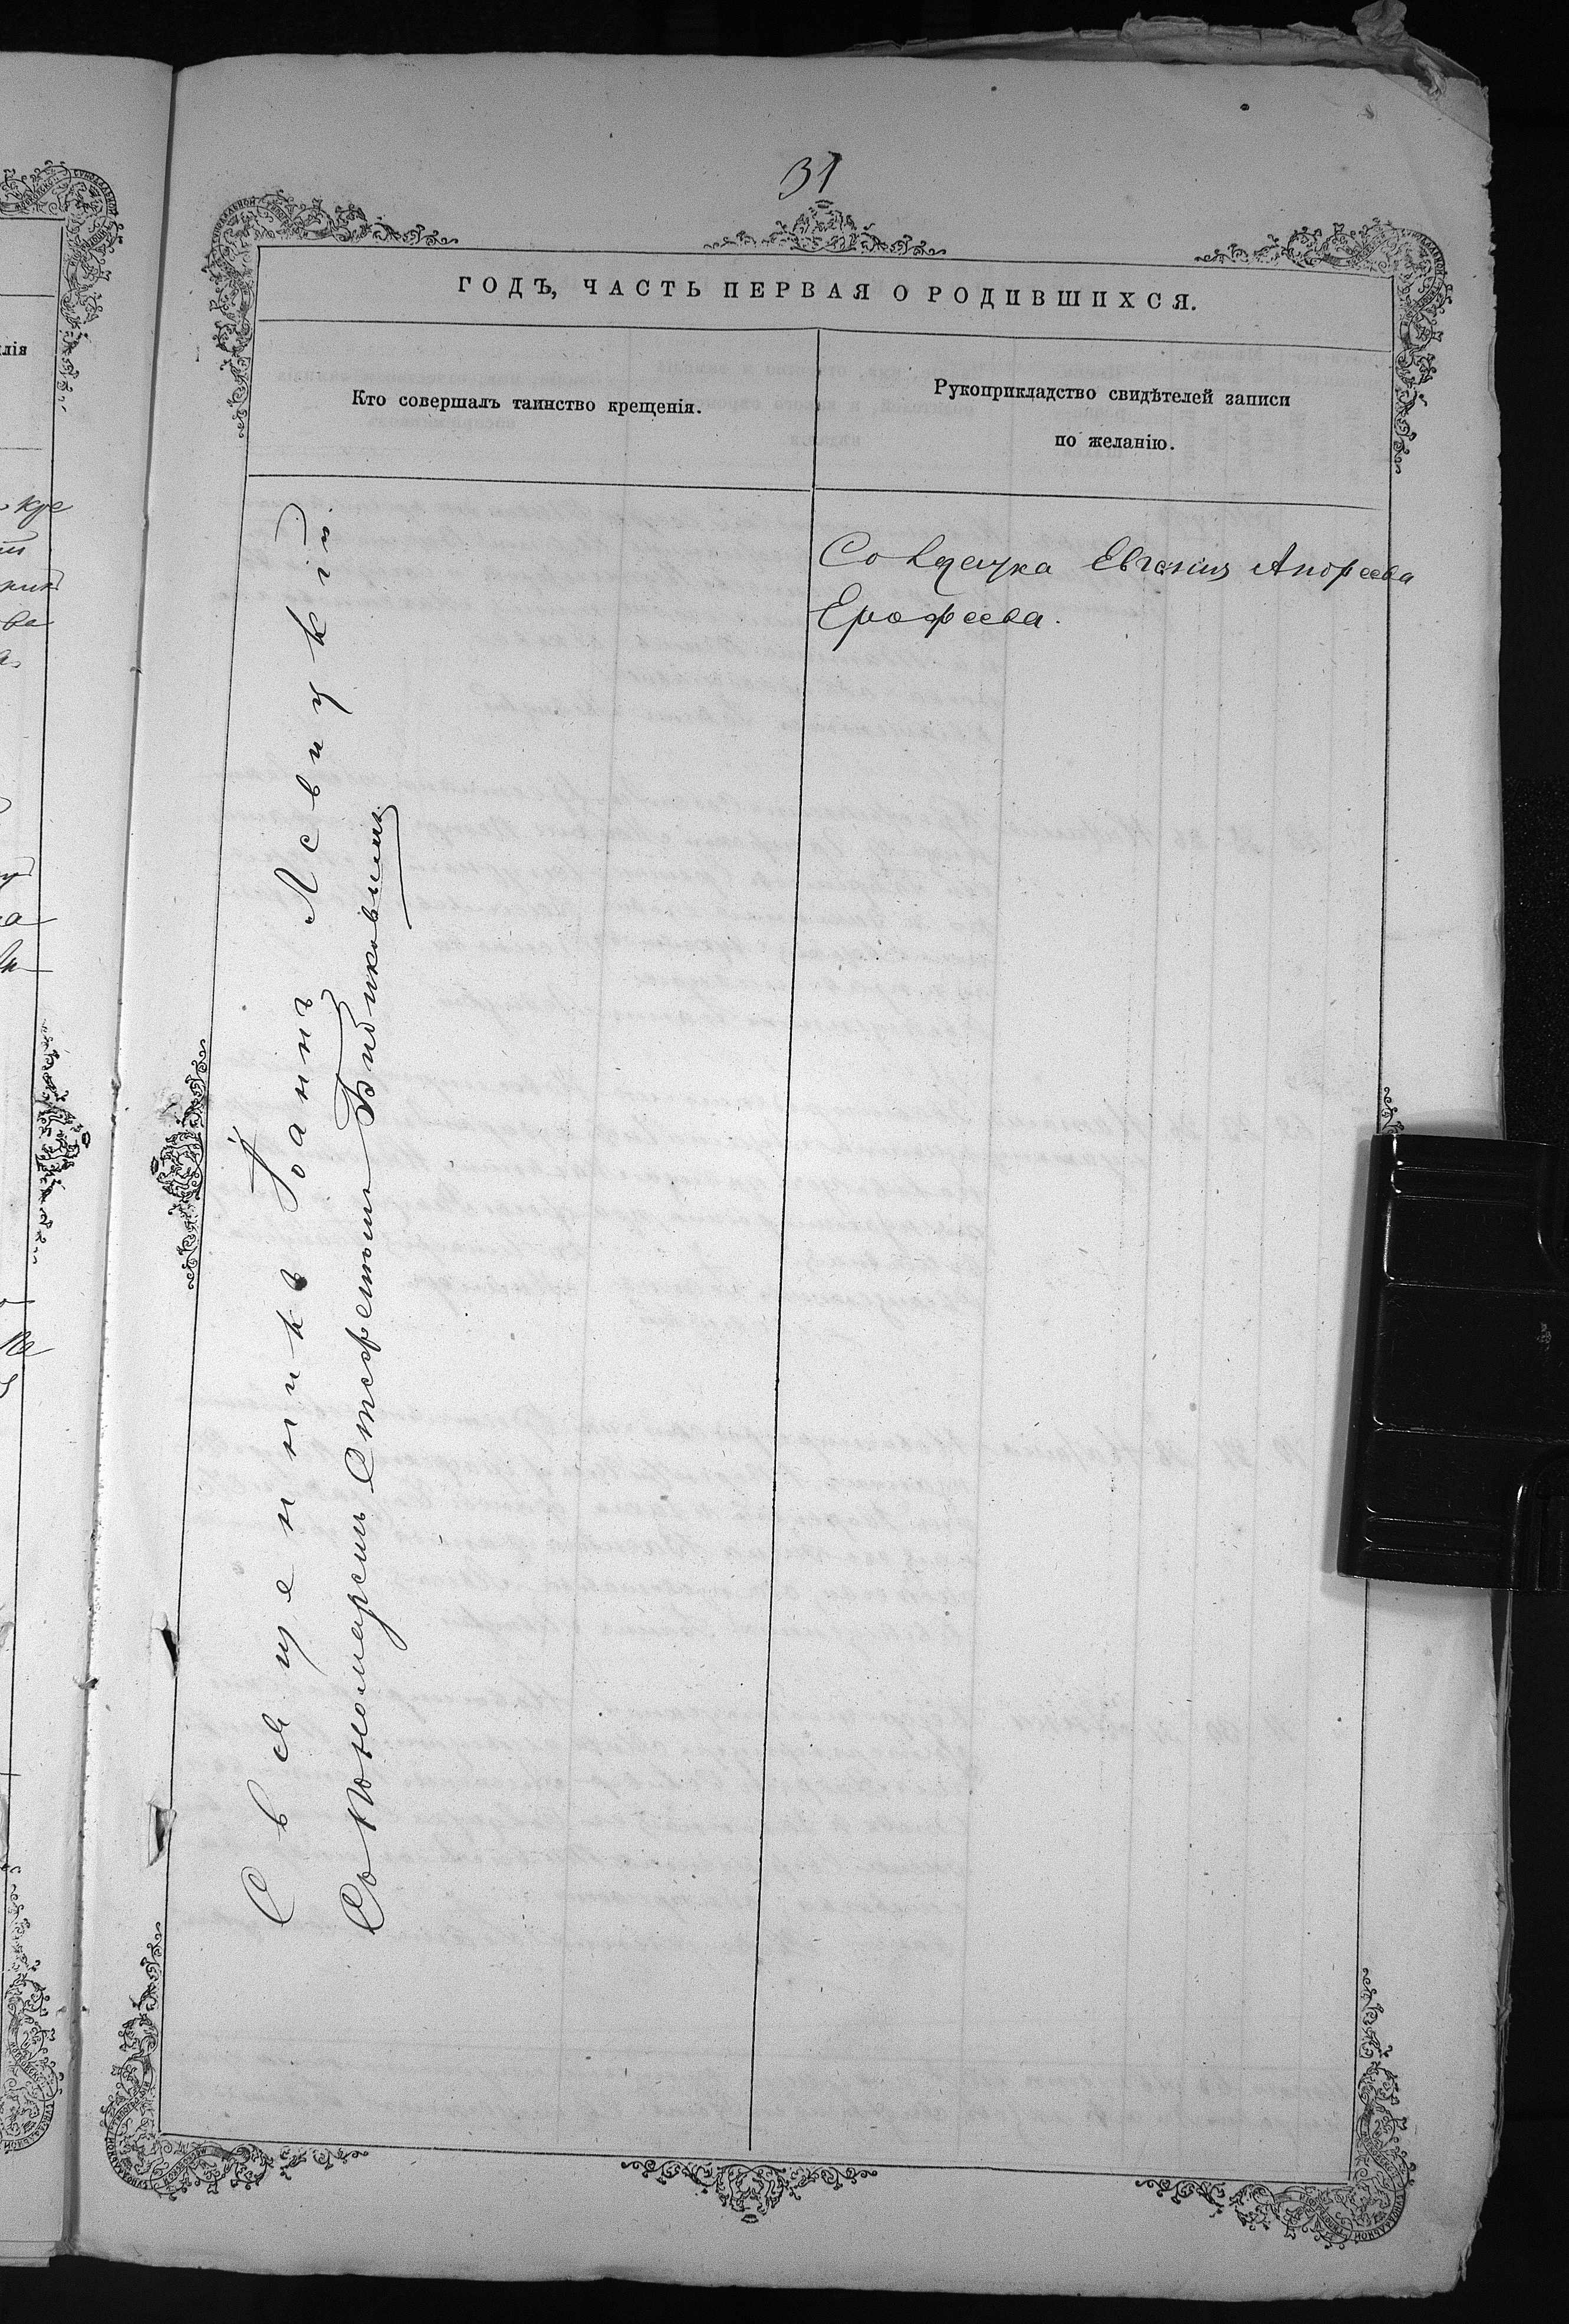 31
ГОДЪ, ЧАСТЬ ПЕРВАЯ О РОДИВШИХСЯ.
Кто совершалъ таинство крещенія.
Рукоприкладство свидѣтелей записи
по желанію.
Священникъ Іоаннъ Левицкій
Съ Пономаремъ Стефаномъ Бибиковымъ
Солдатка Евгенія Андреева
Ерофеева.